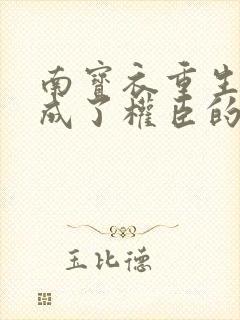 南寶衣重生
成了權臣的
玉比德